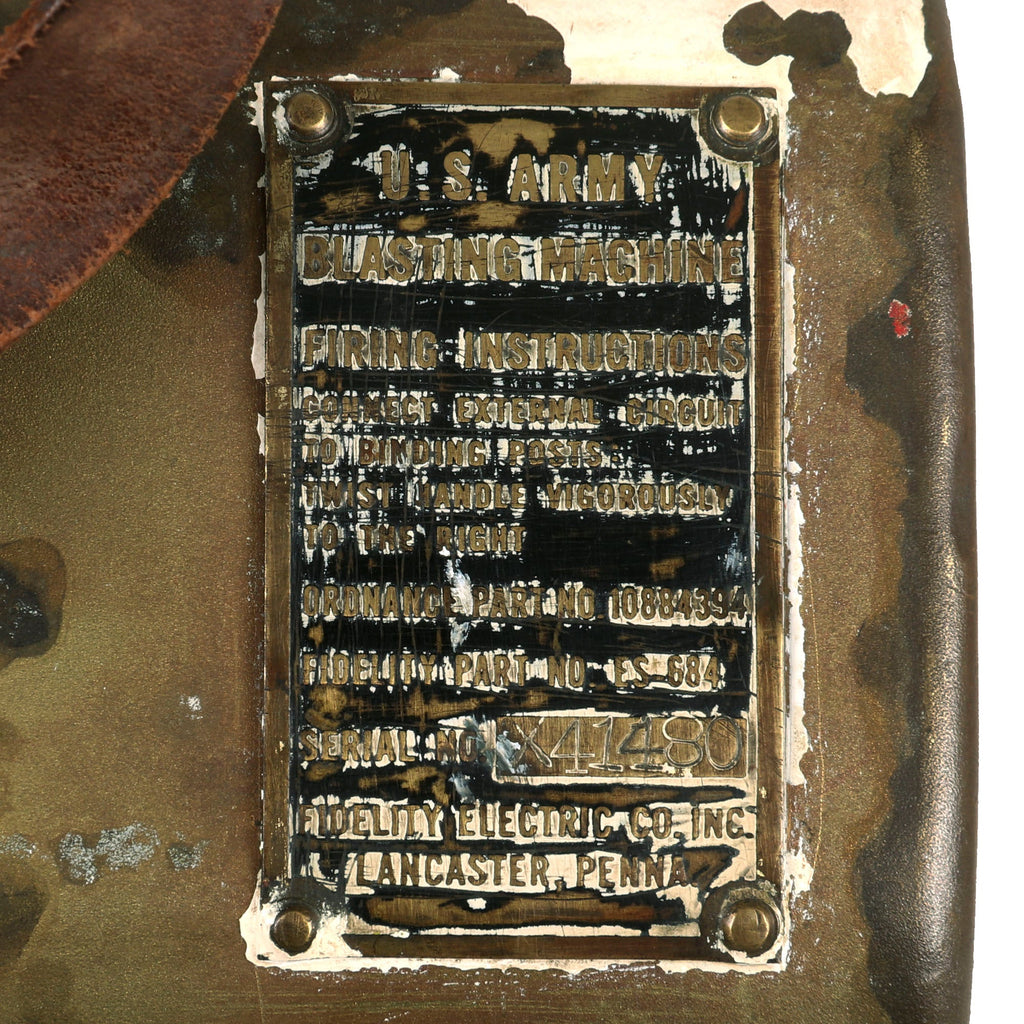 U.S. ARMY
BLASTING MACHINE
FIRING INSTRUCTIONS
CONNECT EXTERNAL CIRCUIT
TO BINDING POSTS:
TWIST HANDLE VIGOROUSLY
TO THE RIGHT
ORDNANCE PART NO. 10884394
FIDELITY PART NO. ES-684
SERIAL NO. X41480
FIDELITY ELECTRIC CO. INC.
LANCASTER, PENNA